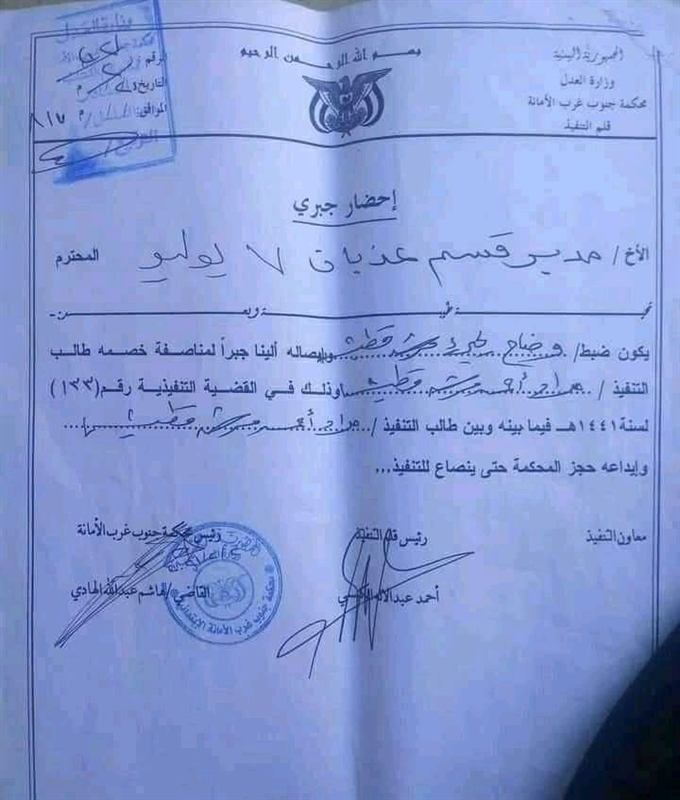 بسم الله الرحمن الرحيم
الجمهورية اليمنية
وزارة العدل
محكمة جنوب غرب الأمانة
قلم التنفيذ
وزارة العدل
الرقم
التاريخ
الموافق
إحضار جبري
الأخ / مدير قسم ٧ يوليو المحترم
تحية طيبة وبعــد
يكون ضبط/ وضاح وإيصاله ألينا جبراً لمناصفة خصمه طالب
التنفيذ / أحمد مرشد وذلك في القضية التنفيذية رقم(١٣٣)
لسنة ١٤٤١هـ فيما بينه وبين طالب التنفيذ / أحمد مرشد
وإيداعه حجز المحكمة حتى ينصاع للتنفيذ...
معاون التنفيذ
رئيس قلم التنفيذ
أحمد
رئيس محكمة جنوب غرب الأمانة
القاضي/ هاشم عبدالله الهادي
محكمة جنوب غرب الأمانة الابتدائية